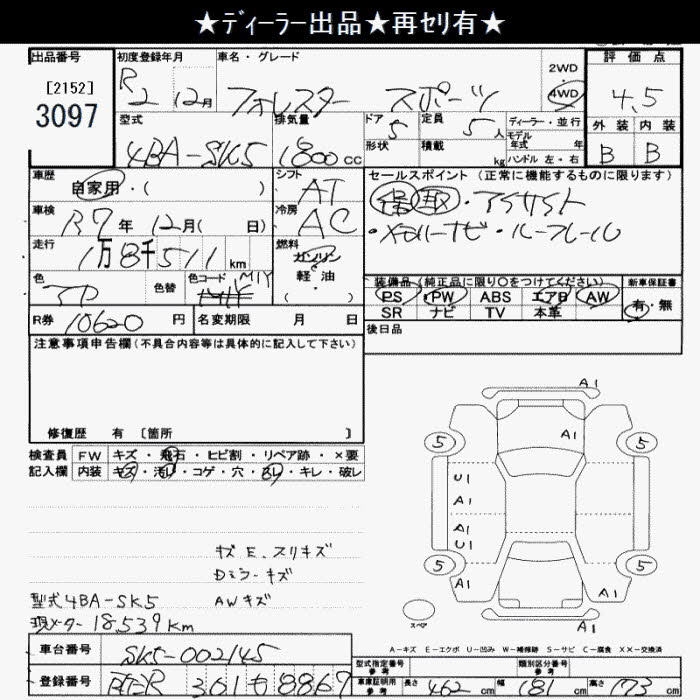 ★ディーラー出品★再セリ有★
出品番号 初度登録年月 車名・グレード 評価点
[2152] R2 12月 フォレスター スポーツ 2WD 4WD 4.5
3097
型式 排気量 ドア 定員 ディーラー・並行 外装 内装
4BA-SK5 1800cc 5 5人 モデル年式 年 B B
形状 積載 kg ハンドル 左・右
車歴 自家用・( ) シフト AT セールスポイント (正常に機能するものに限ります)
車検 R7年12月( 日) 冷房 AC 保 取・アイサイト
・メモリーナビ・ルーフレール
走行 1万8千511km 燃料 ガソリン・軽油
( )
色 色替 色コード M1Y 装備品(純正品に限り○をつけてください) 新車保証書
PS・PW ABS エアB AW 有・無
SR ナビ TV 本革
R券 10620円 名変期限 月 日 後日品
注意事項申告欄(不具合内容等は具体的に記入して下さい)
修復歴 有 [箇所 ]
検査員 FW キズ・飛石・ヒビ割・リペア跡・×要
記入欄 内装 キズ・汚れ・コゲ・穴・スレ・キレ・破レ
A1
A1
5 5
U1
A1
A1
U1
5 5
A1 A1
A1
スペア
キズE.スリキズ
Dミラーキズ
型式4BA-SK5 AWキズ
現メーター18539Km
A-キズ E-エクボ U-凹み W-補修跡 S-サビ C-腐食 XX-交換済
車台番号 SK5-002145 型式指定番号 参考 類別区分番号 参考
登録番号 301 も 8869 車庫証明用 参考 長さ 462cm 幅 181cm 高さ 173cm